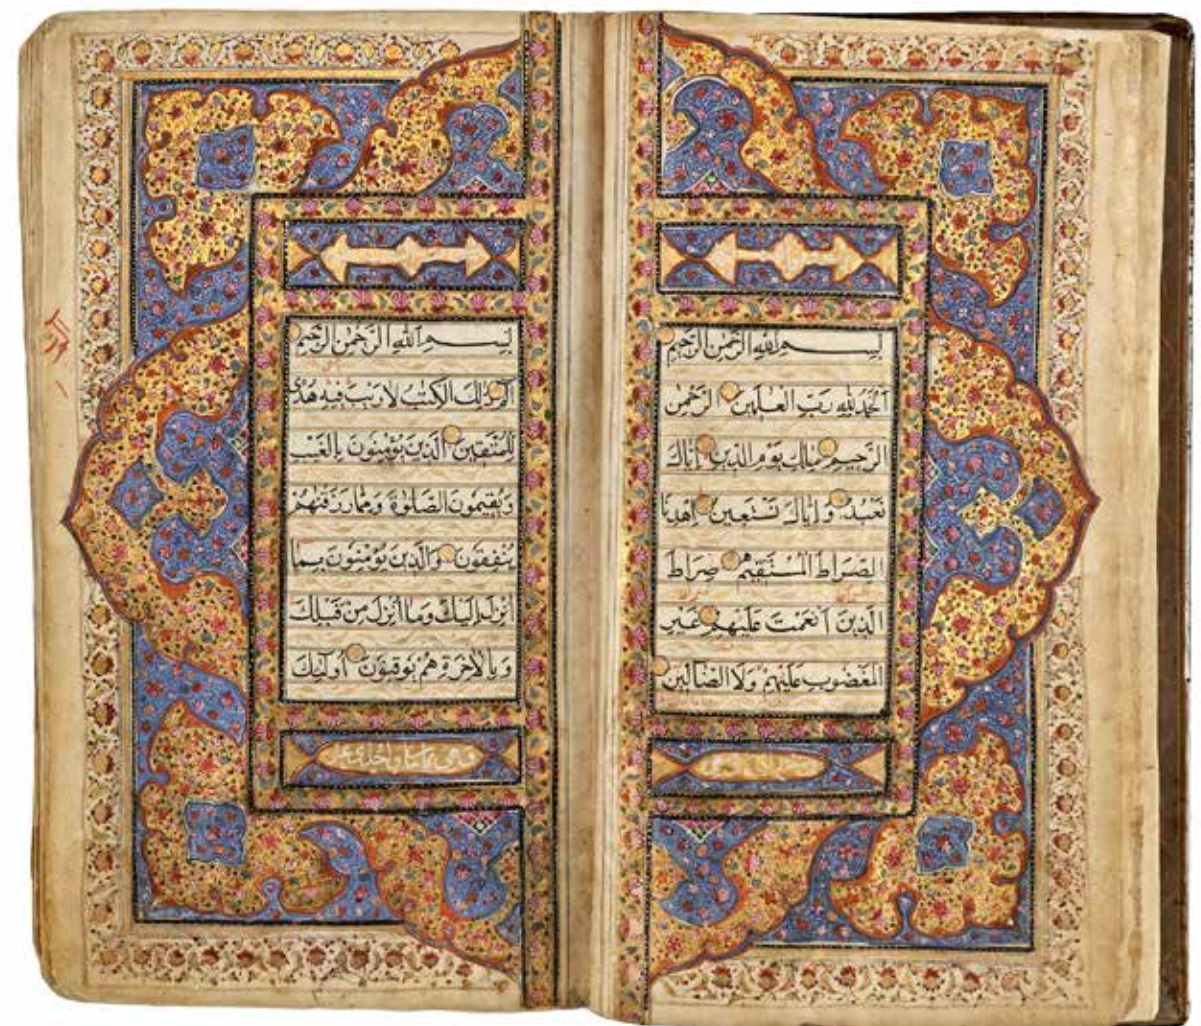 بِسْمِ ٱللهِ الرَّحْمٰنِ الرَّحِيْمِ
اَلْحَمْدُ لِلّٰهِ رَبِّ الْعٰلَمِيْنَ الرَّحْمٰنِ
الرَّحِيْمِ مٰلِكِ يَوْمِ الدِّيْنِ اِيَّاكَ
نَعْبُدُ وَ اِيَّاكَ نَسْتَعِيْنُ اِهْدِنَا
الصِّرَاطَ الْمُسْتَقِيْمَ صِرَاطَ
الَّذِيْنَ اَنْعَمْتَ عَلَيْهِمْ غَيْرِ
الْمَغْضُوْبِ عَلَيْهِمْ وَلَا الضَّالِّيْنَ
بِسْمِ ٱللهِ الرَّحْمٰنِ الرَّحِيْمِ
الٓمٓ ذٰلِكَ الْكِتٰبُ لَا رَيْبَ فِيْهِ هُدًى
لِلْمُتَّقِيْنَ الَّذِيْنَ يُؤْمِنُوْنَ بِالْغَيْبِ
وَيُقِيْمُوْنَ الصَّلٰوةَ وَمِمَّا رَزَقْنٰهُمْ
يُنْفِقُوْنَ وَالَّذِيْنَ يُؤْمِنُوْنَ بِمَا
اُنْزِلَ اِلَيْكَ وَمَا اُنْزِلَ مِنْ قَبْلِكَ
وَبِالْاٰخِرَةِ هُمْ يُوْقِنُوْنَ اُولٰٓئِكَ